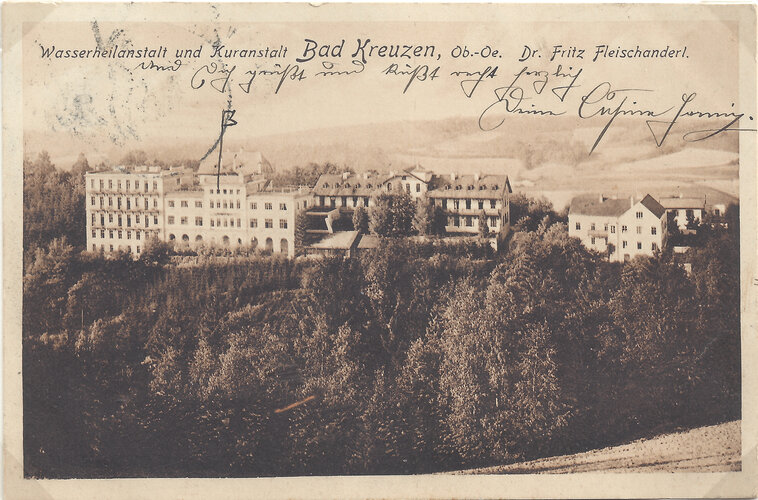 Wasserheilanstalt und Kuranstalt Bad Kreuzen, Ob.-Oe. Dr. Fritz Fleischanderl.
und Dich grüßt und küßt recht herzlich
Deine Cusine